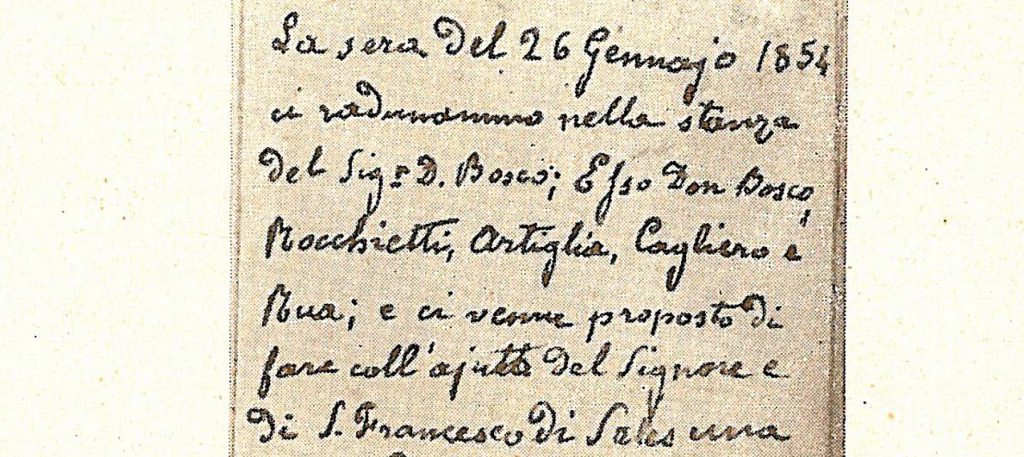 La sera del 26 Gennajo 1854
ci radunammo nella stanza
del Sigr D. Bosco; Esso Don Bosco,
Rocchietti, Artiglia, Cagliero e
Rua; e ci venne proposto di
fare coll'ajuto del Signore e
di S. Francesco di Sales una